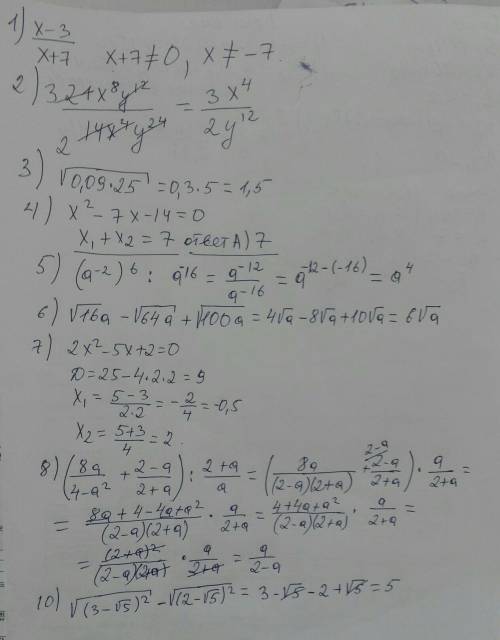 1) x-3/x+7 x+7≠0, x≠-7.
2) 3 21x⁸y¹²/2 14x⁴y²⁴ = 3x⁴/2y¹²
3) √0,09·25 = 0,3·5 = 1,5
4) x² - 7x - 14 = 0
x₁ + x₂ = 7 ответ А) 7
5) (a⁻²)⁶ : a¹⁶ = a⁻¹²/a⁻¹⁶ = a⁻¹²⁻⁽⁻¹⁶⁾ = a⁴
6) √16a - √64a + √100a = 4√a - 8√a + 10√a = 6√a
7) 2x² - 5x + 2 = 0
D = 25 - 4·2·2 = 9
x₁ = 5-3/2·2 = -2/4 = -0,5
x₂ = 5+3/4 = 2
8) (8a/4-a² + 2-a/2+a) : 2+a/a = (8a/(2-a)(2+a) + 2-a/ 2-a/2+a) · a/2+a =
= 8a+4-4a+a²/(2-a)(2+a) · a/2+a = 4+4a+a²/(2-a)(2+a) · a/2+a =
= (2+a)²/(2-a)(2+a) · a/2+a = a/2-a
10) √(3-√5)² - √(2-√5)² = 3-√5-2+√5 = 5